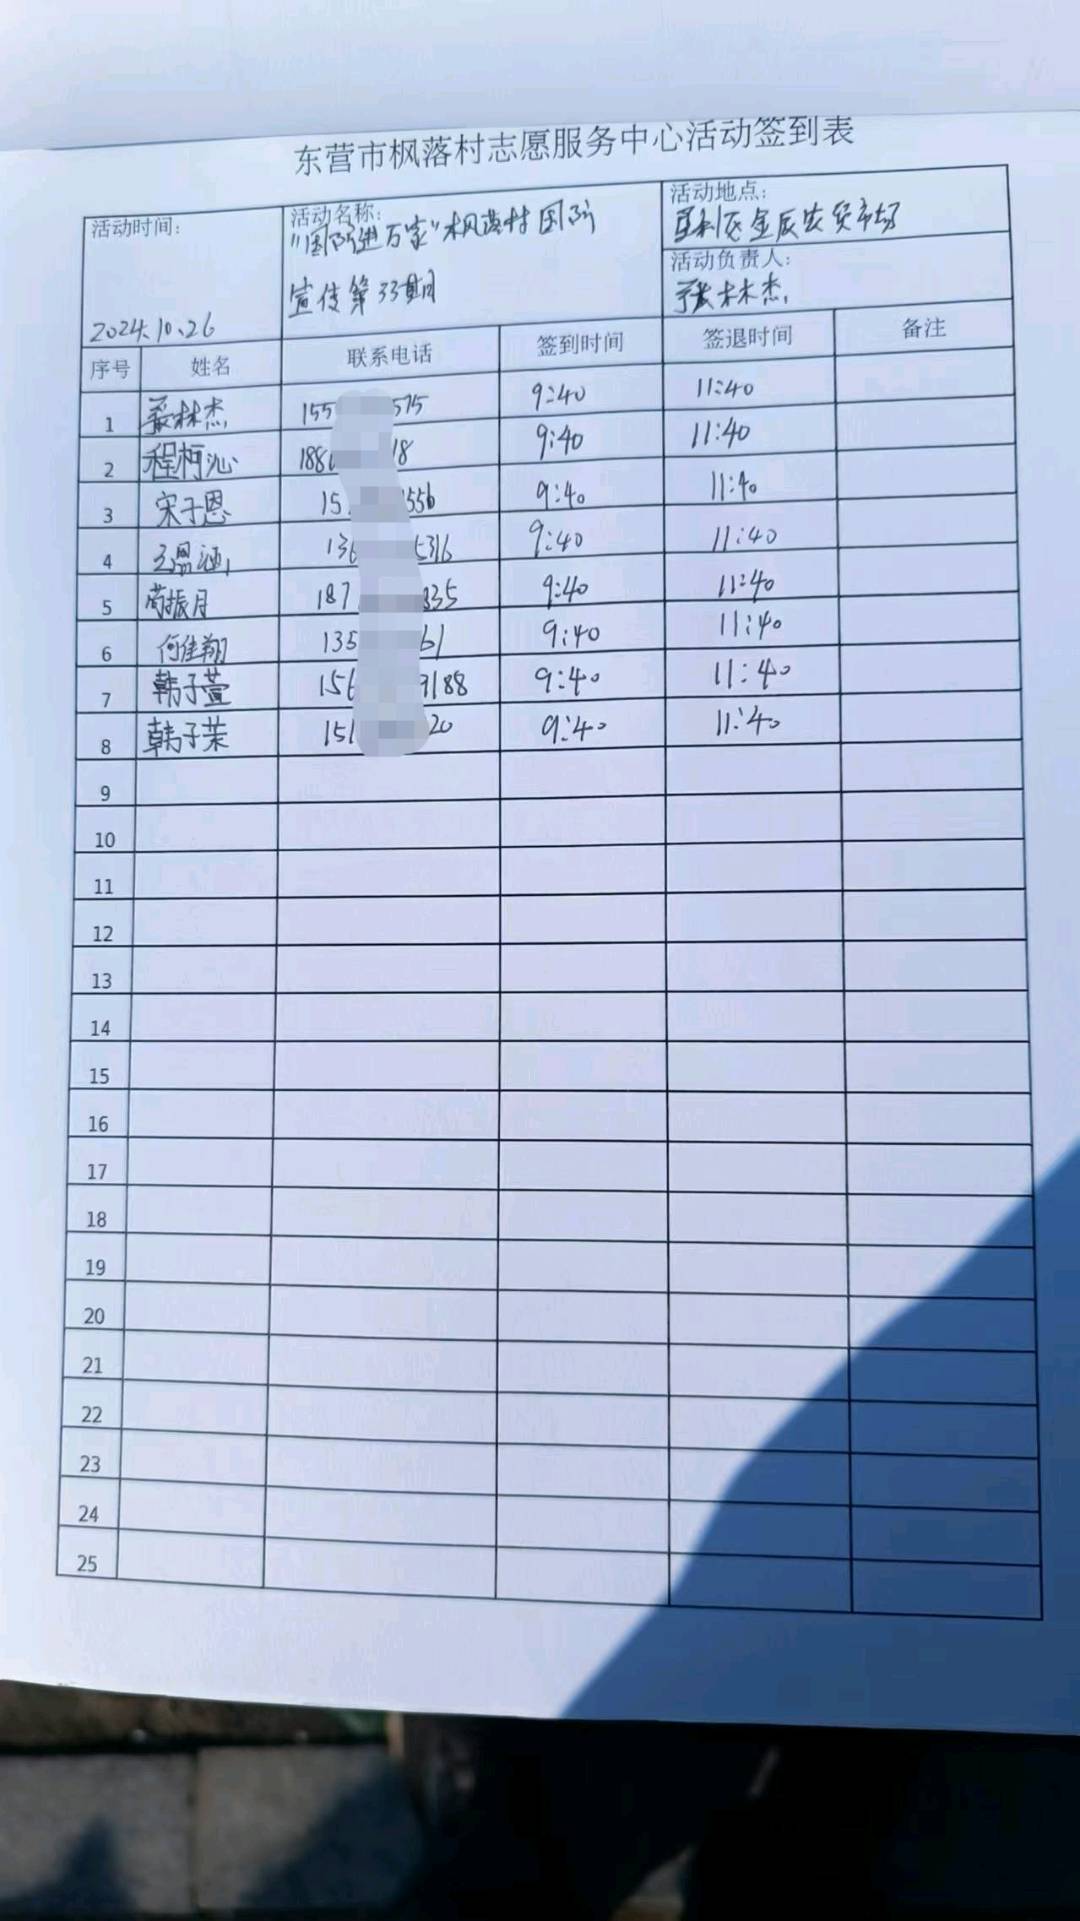 东营市枫落村志愿服务中心活动签到表
活动时间:
2024.10.26
活动名称:
"国防进万家"枫落村国防
宣传第33期
活动地点:
垦利区金辰农贸市场
活动负责人:
林杰
序号 姓名 联系电话 签到时间 签退时间 备注
1 林杰 155 575 9:40 11:40
2 程柯沁 188 18 9:40 11:40
3 宋子恩 15 556 9:40 11:40
4 136 5316 9:40 11:40
5 苟振月 187 835 9:40 11:40
6 何佳翔 135 61 9:40 11:40
7 韩子萱 156 9188 9:40 11:40
8 韩子荣 151 20 9:40 11:40
9
10
11
12
13
14
15
16
17
18
19
20
21
22
23
24
25